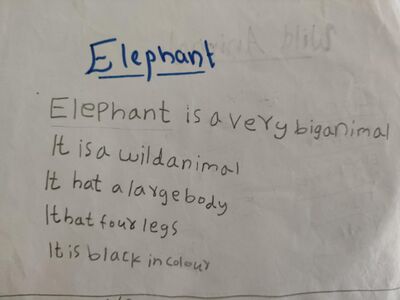 Elephant
Elephant is a very big animal
It is a wild animal
It hat a large body
It hat four legs
It is black in colour